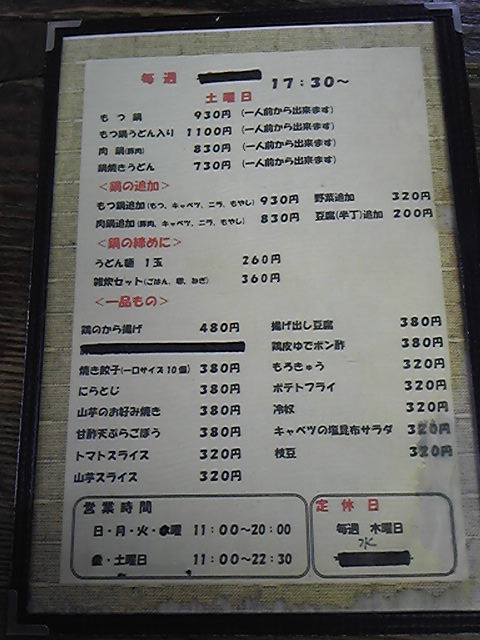 毎週 17:30～
土曜日
もつ鍋 930円 (一人前から出来ます)
もつ鍋うどん入り 1100円 (一人前から出来ます)
肉鍋(豚肉) 830円 (一人前から出来ます)
鍋焼きうどん 730円 (一人前から出来ます)
<鍋の追加>
もつ鍋追加(もつ、キャベツ、ニラ、もやし) 930円 野菜追加 320円
肉鍋追加(豚肉、キャベツ、ニラ、もやし) 830円 豆腐(半丁)追加 200円
<鍋の締めに>
うどん麺 1玉 260円
雑炊セット(ごはん、卵、ねぎ) 360円
<一品もの>
鶏のから揚げ 480円 揚げ出し豆腐 380円
鶏皮ゆでポン酢 380円
焼き餃子(一口サイズ10個) 380円 もろきゅう 320円
にらとじ 380円 ポテトフライ 320円
山芋のお好み焼き 380円 冷奴 320円
甘酢天ぷらごぼう 380円 キャベツの塩昆布サラダ 320円
トマトスライス 320円 枝豆 320円
山芋スライス 320円
営業時間
日・月・火・水曜 11:00～20:00
金・土曜日 11:00～22:30
定休日
毎週 木曜日
水